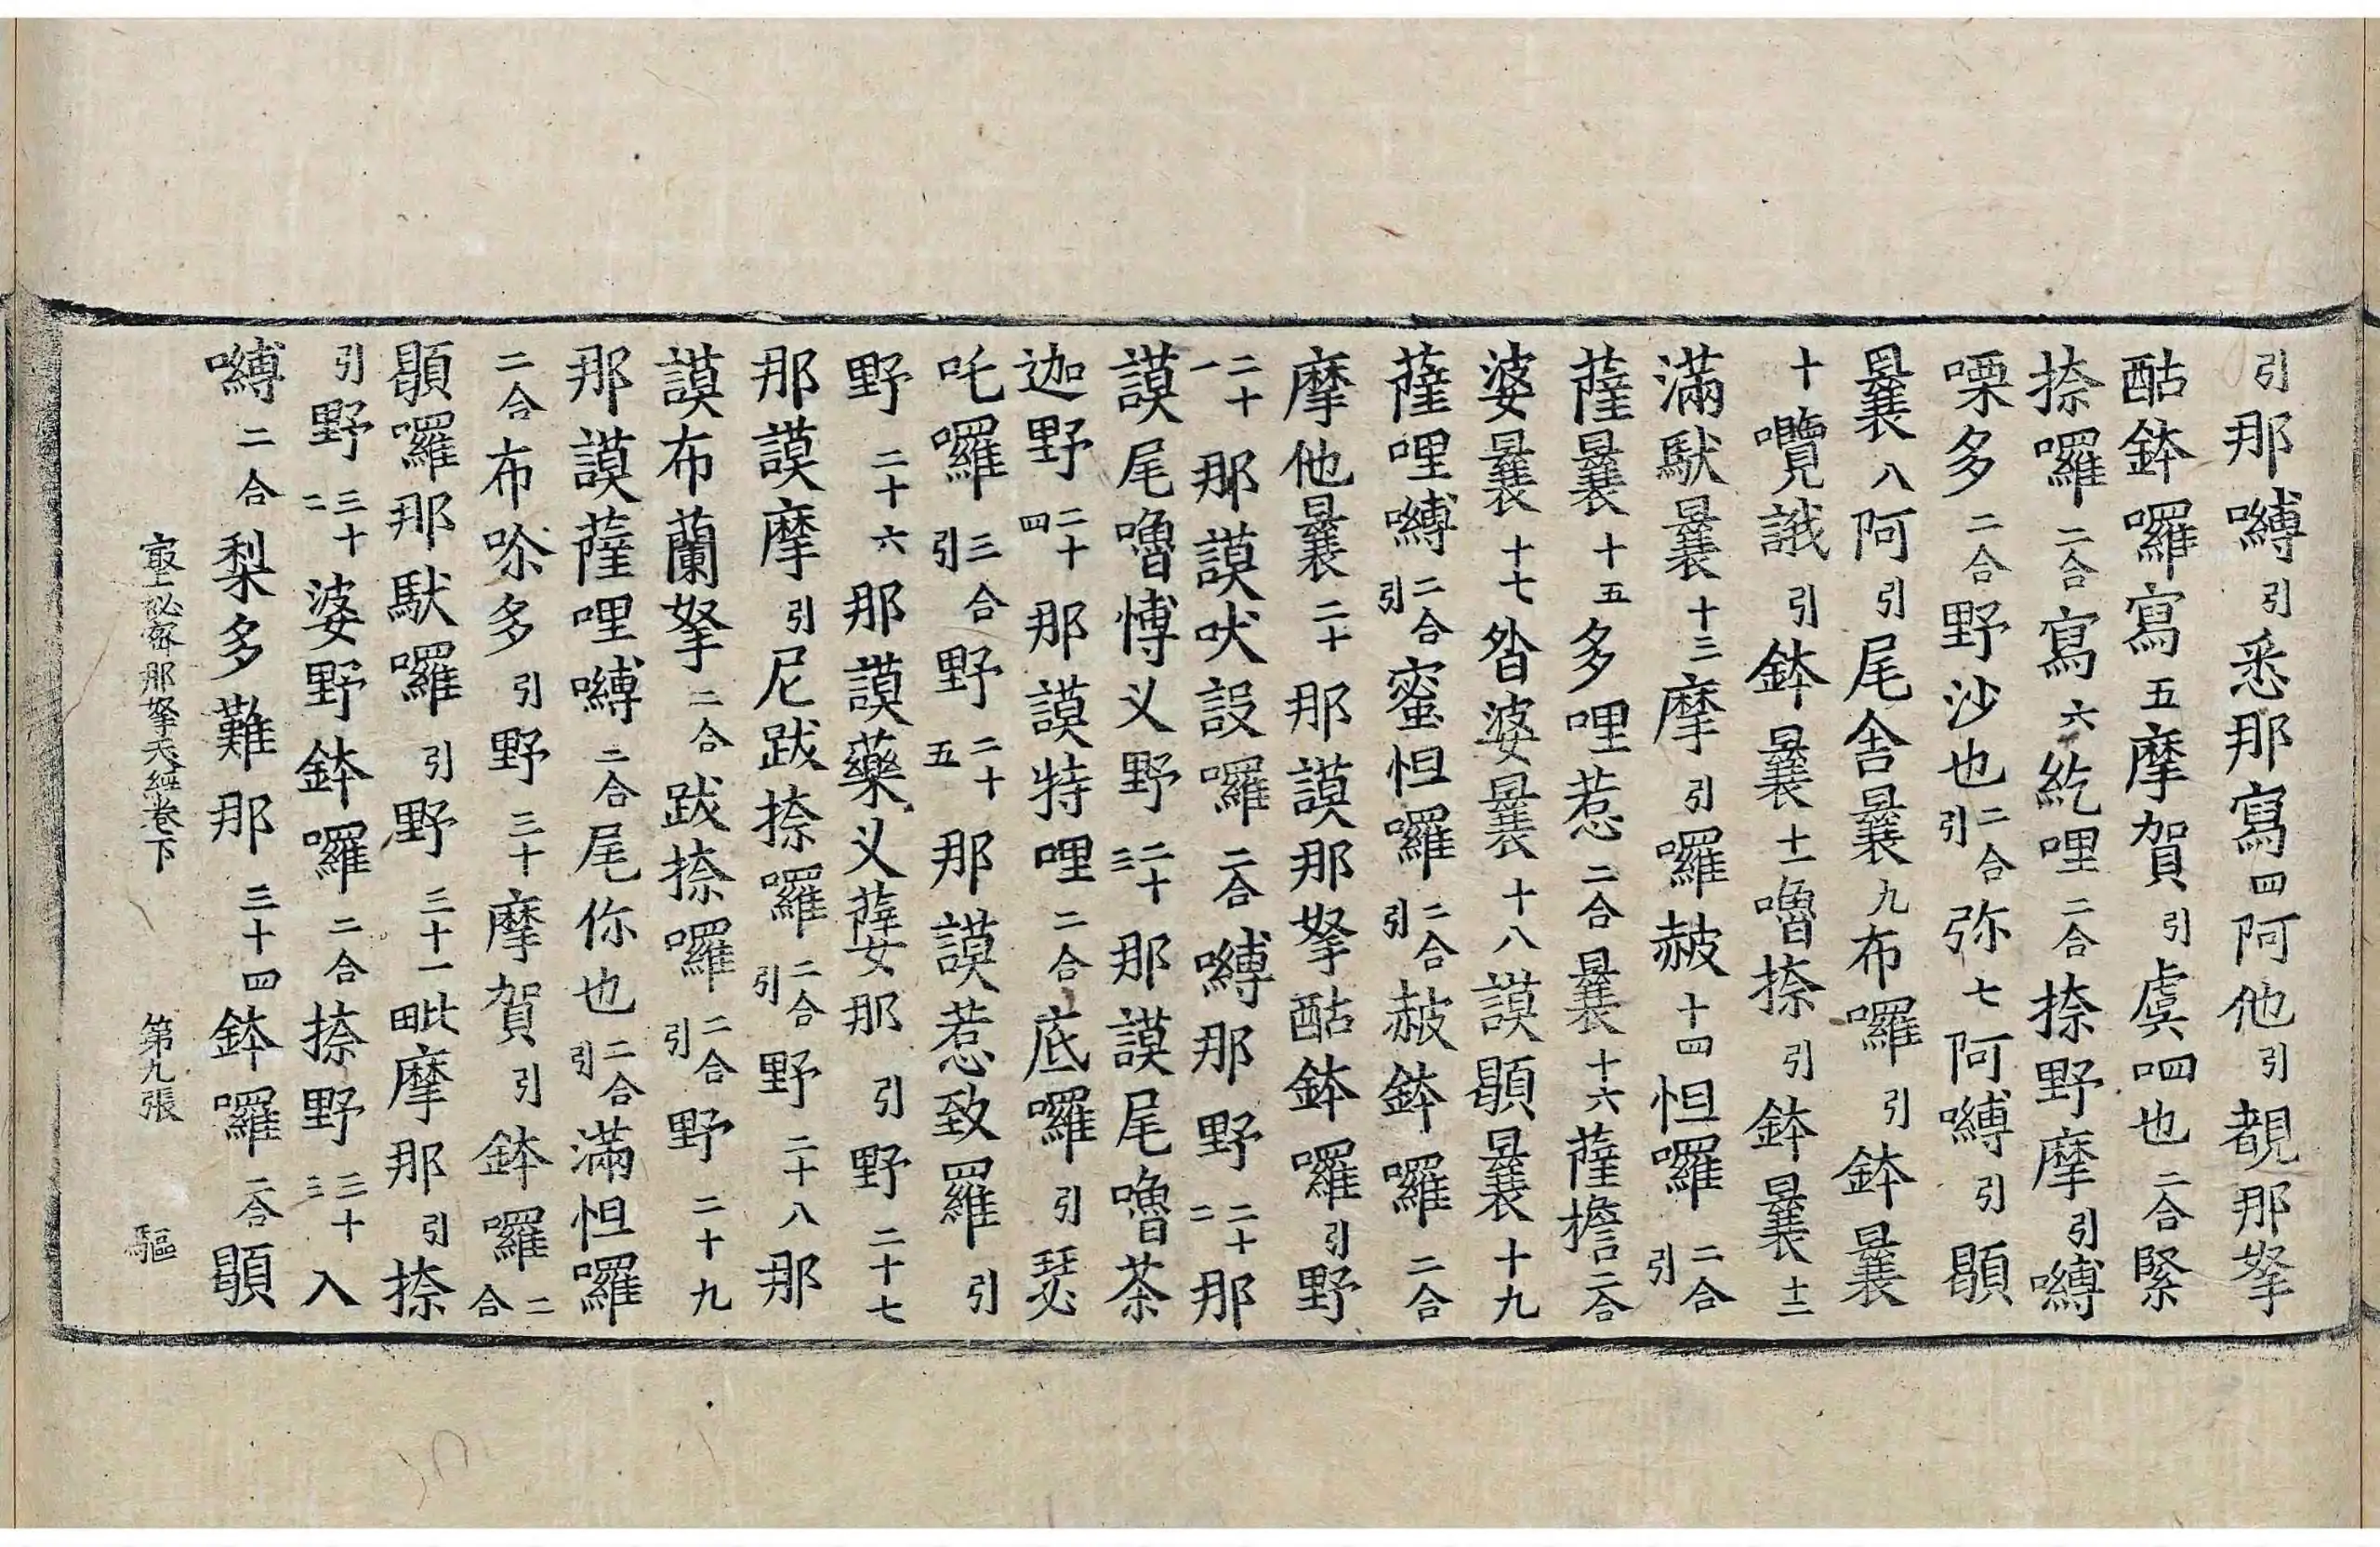 引那嚩引悉那寫四阿他引覩那拏
酤鉢囉寫五摩賀引虞呬也二合緊
捺囉二合寫六紇哩二合捺野摩引嚩
㗚多二合野沙也二合引弥七阿嚩引頞
曩八阿引尾舍曩九布囉引鉢曩
十囕誐引鉢曩十一嚕捺引鉢曩十二
滿馱曩十三摩引囉赦十四怛囉二合引
薩曩十五多哩惹二合曩十六薩擔二合
婆曩十七昝婆曩十八謨頞曩十九
薩哩嚩二合引蜜怛囉二合引赦鉢囉二合
摩他曩二十那謨那拏酤鉢囉引野
二十一那謨吠設囉二合嚩那野二十二那
謨尾嚕博义野二十三那謨尾嚕茶
迦野二十四那謨特哩二合底囉引瑟
吒囉三合引野二十五那謨惹致羅引
野二十六那謨藥义薩女那引野二十七
那謨摩引尼跋捺囉二合引野二十八那
謨布蘭拏二合跋捺囉二合引野二十九
那謨薩哩嚩二合尾你也二合引滿怛囉
二合布唋多引野三十摩賀引鉢囉二合
頞囉那馱囉引野三十一毗摩那引捺
引野三十二婆野鉢囉二合捺野三十三入
嚩二合梨多難那三十四鉢囉二合頞
冣上祕密那拏天經卷下　第九張　驅